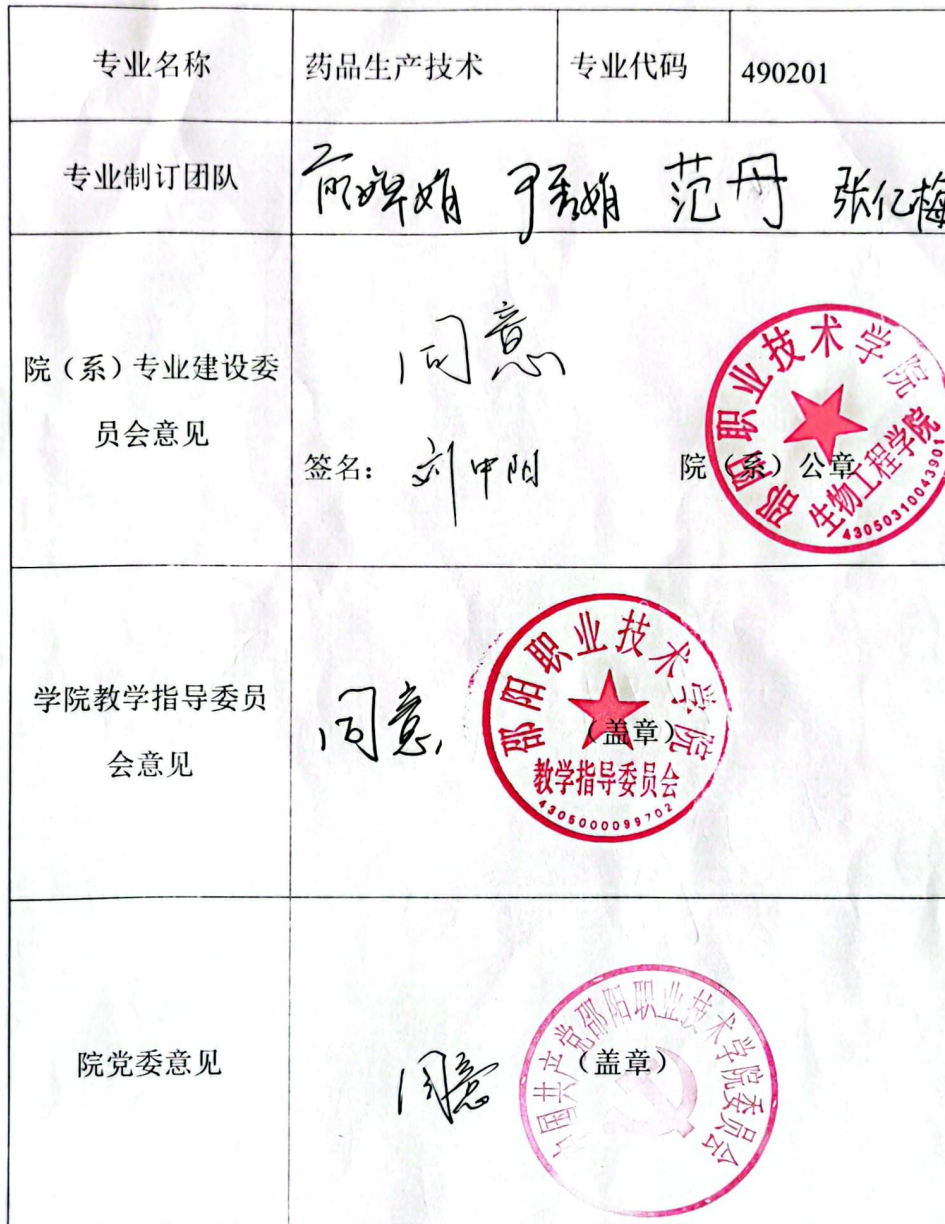 专业名称 药品生产技术 专业代码 490201
专业制订团队 范丹 张亿梅
院（系）专业建设委
员会意见
同意
签名： 刘中阳 院（系）公章
邵阳职业技术学院
生物工程学院
4305031004390
学院教学指导委员
会意见
同意 （盖章）
邵阳职业技术学院
教学指导委员会
4305000099702
院党委意见 同意 （盖章）
中国共产党邵阳职业技术学院委员会